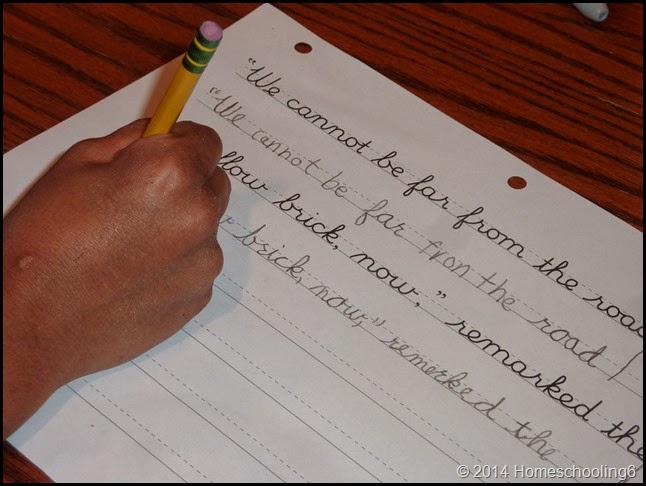 "We cannot be far from the road
"We cannot be far fron the road
llow brick, now," remarked the
brick, now," remerked the
© 2014 Homeschooling6